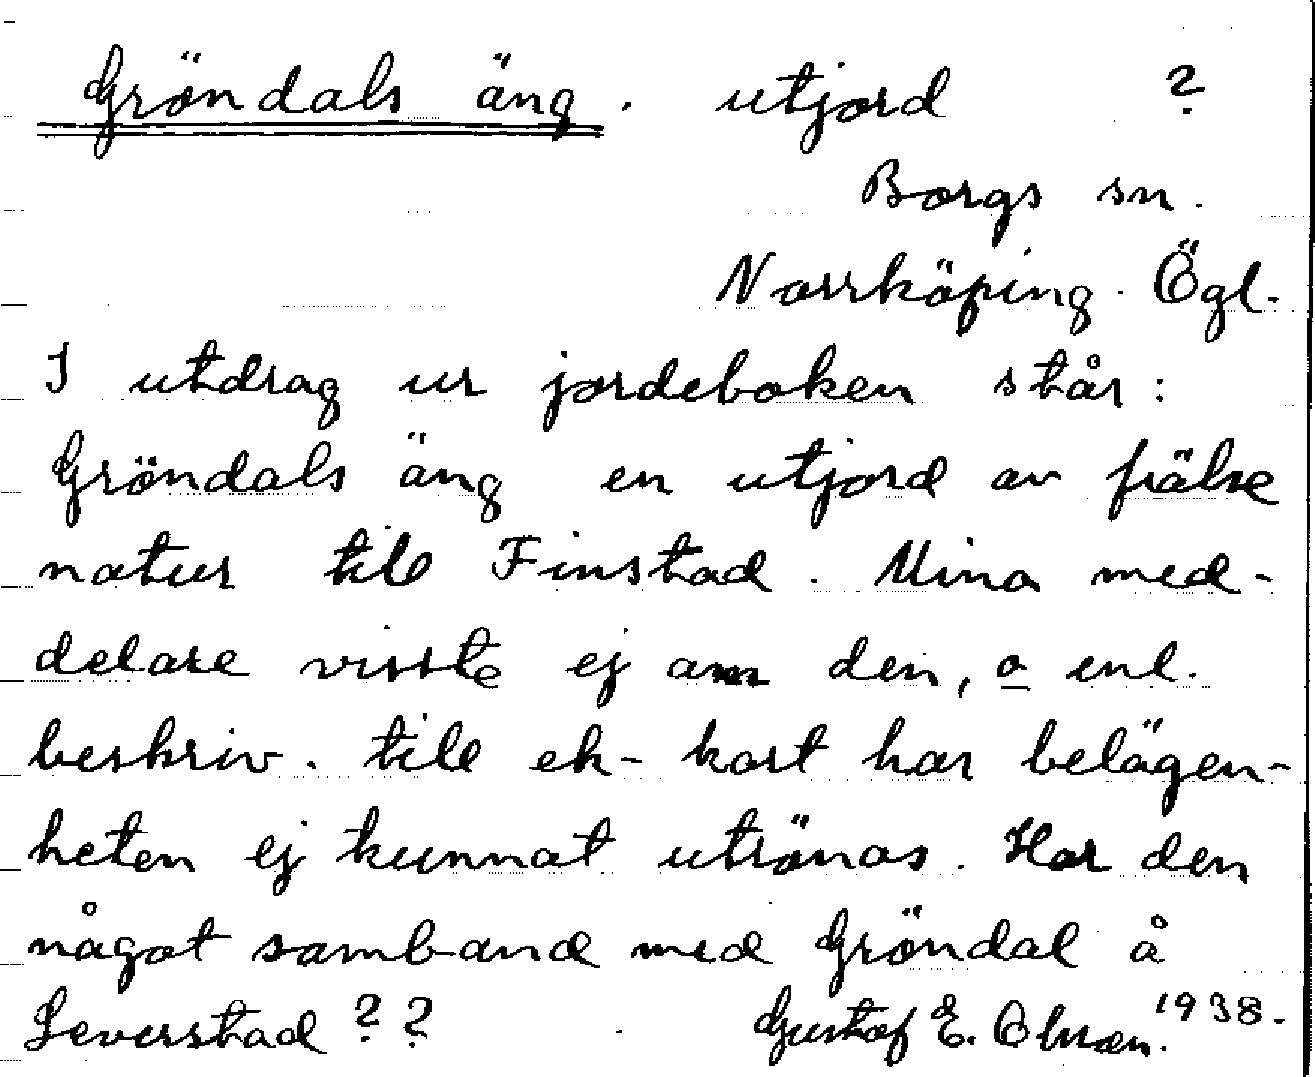 Gröndals äng. utjord ?
Borgs sn.
Norrköping. Ögl.
I utdrag ur jordeboken står:
Gröndals äng en utjord av frälse
natur till Finstad. Mina med-
delare visste ej om den, o enl.
beskriv. till ek-kart har belägen-
heten ej kunnat utrönas. Har den
något samband med Gröndal å
Leverstad ?? Gustaf E. Olsson. 1938.